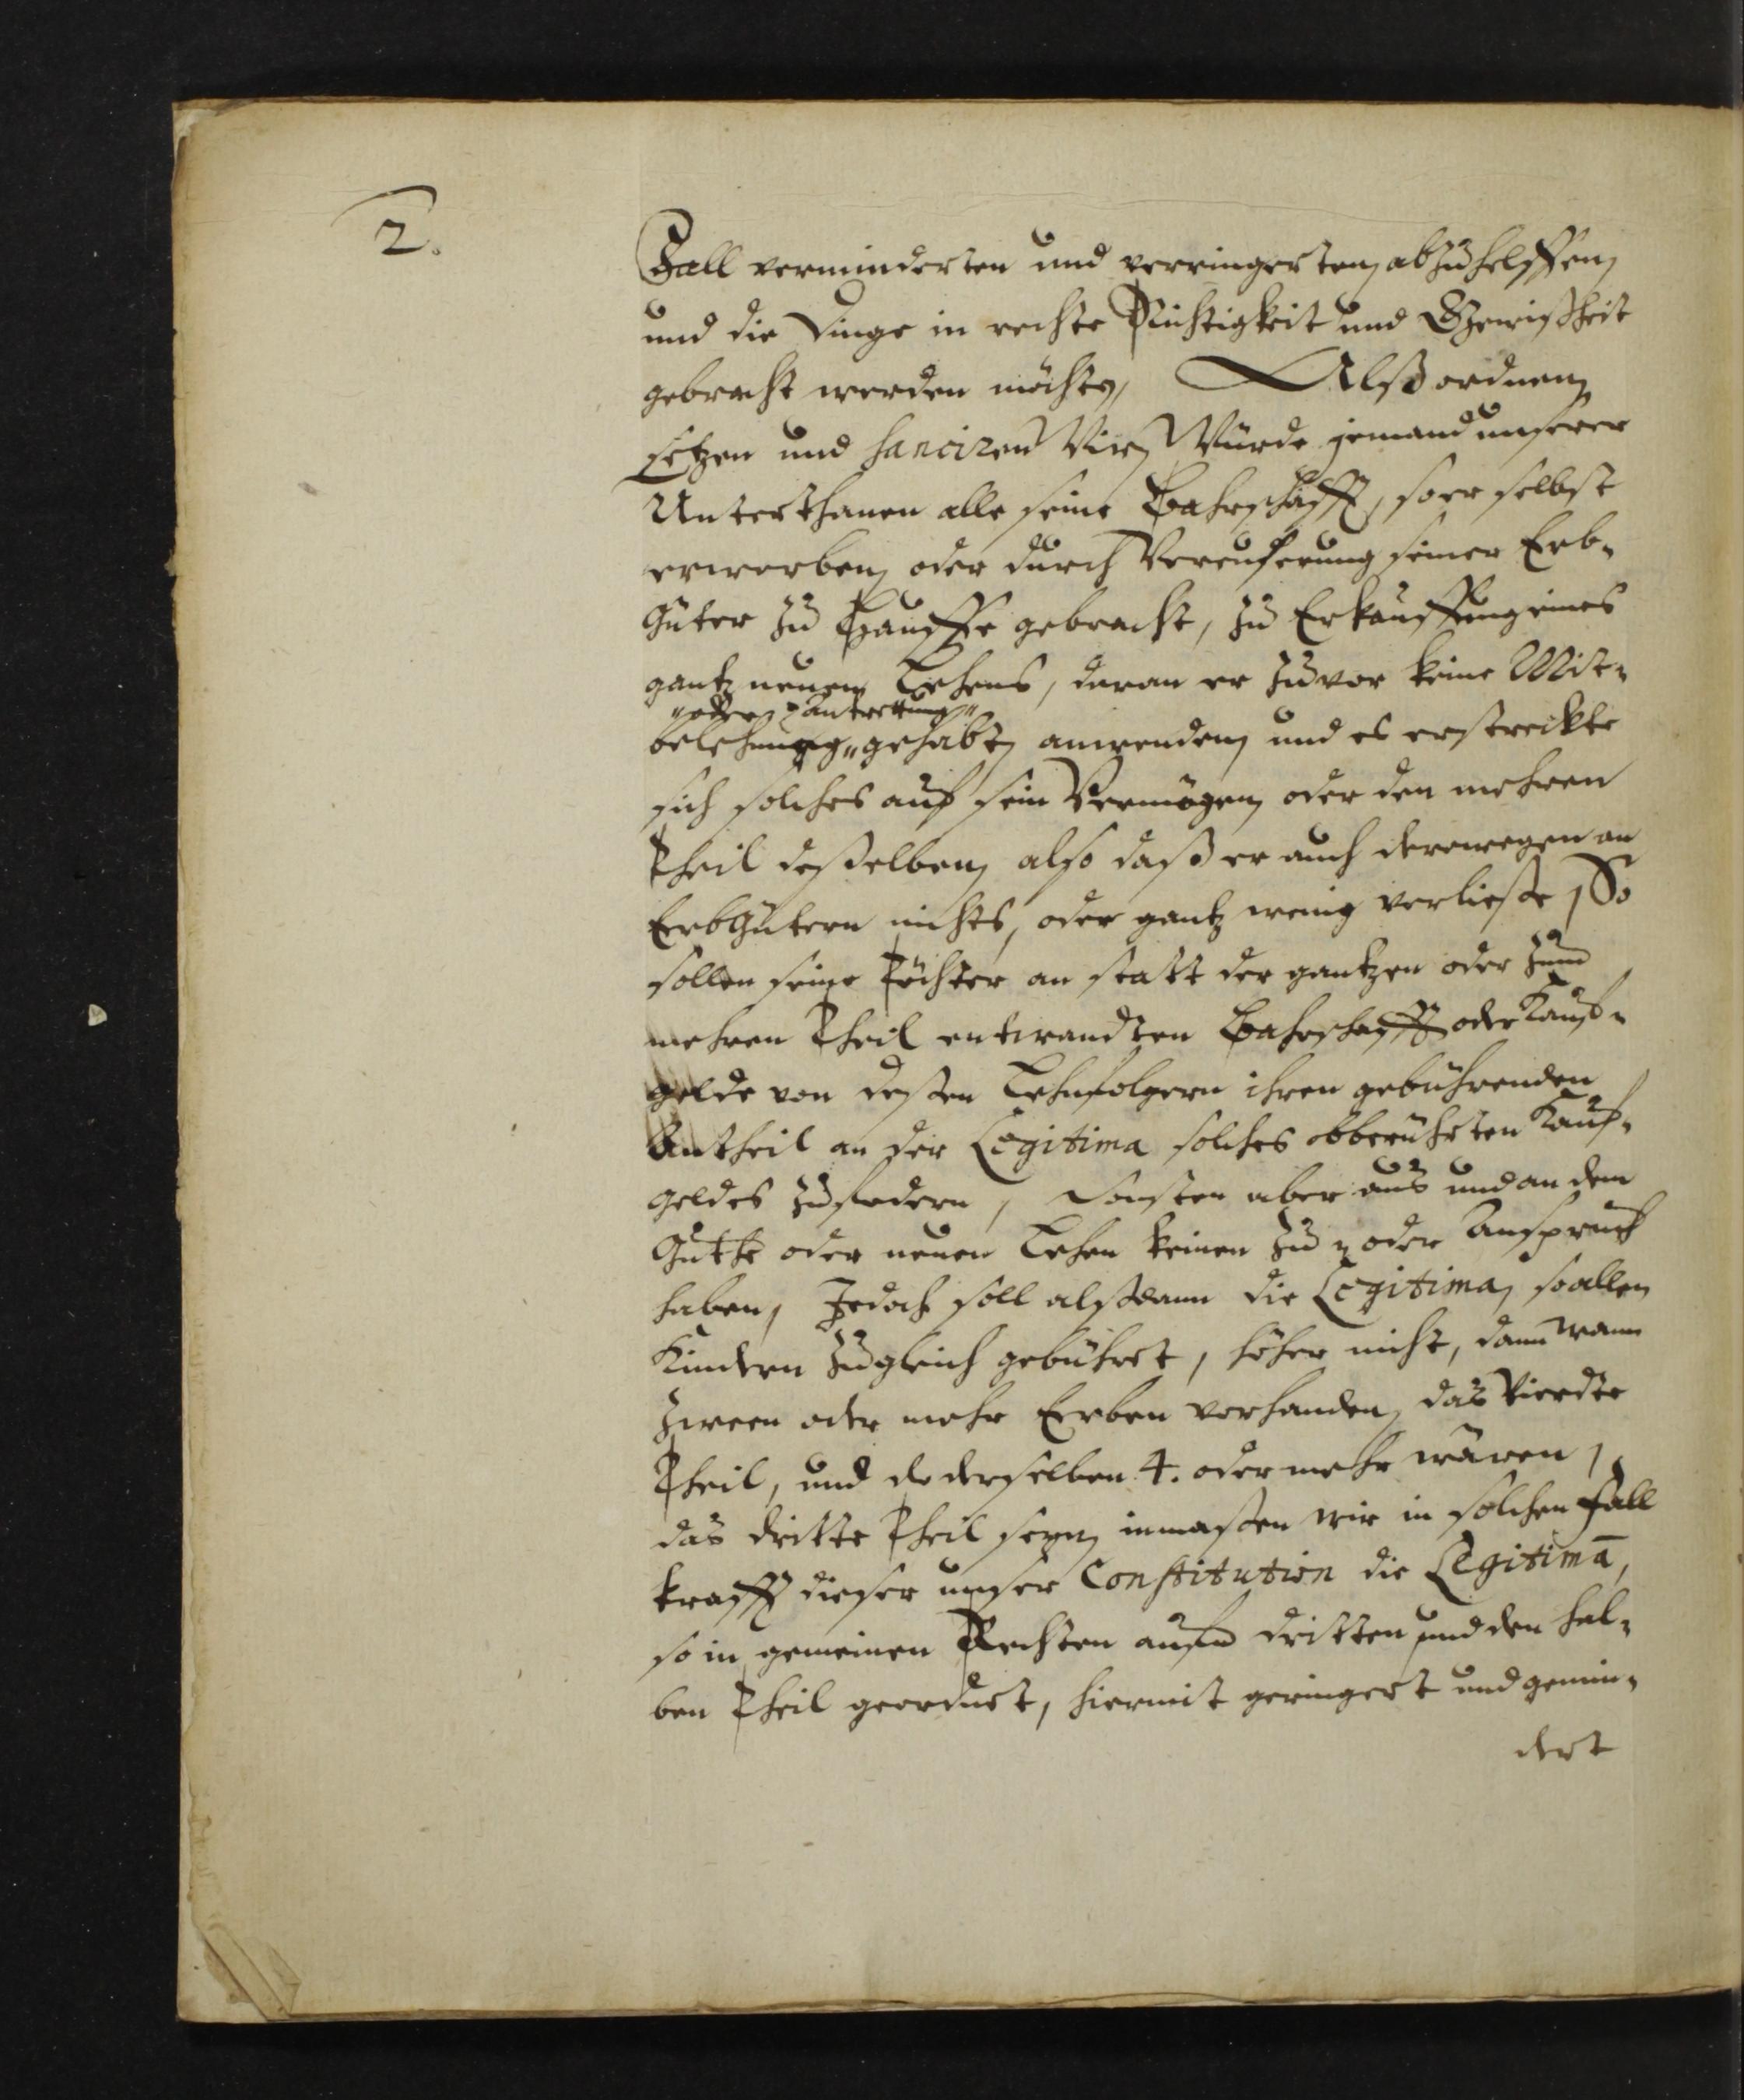 2.
Zall verminderten und verringerten abzuhelffen
und die Dinge in rechte Richtigkeit und Gewißheit
gebracht werden möchte, Alß ordnen
setzen und sanciren Wir, Würde jemand unserer
Unterthanen alle seine Bahrschafft, so er selbst
erworben oder durch Vereuserung seiner Erb-
Güter zu Hauffe gebracht, zu Erkauffung eines
gantz neuen Lehens, daran er zuvor keine Mit-
"oder Antrettung"
belehnung" gehabt, anwenden und es erstreckte
sich solches auf sein Vermögen oder den mehren
Theil desselben also daß er auch derowegen an
Erbgütern nichts, oder gantz wenig verliesse, So
sollen seine Töchter an statt der gantzen oder zum
mehren Theil entwandten Bahrschafft oder Kauf-
gelde von dessen Lehnfolgern ihren gebührenden
Antheil an der Legitima solches obberührten Kauf-
geldes zufodern, Sonsten aber aus und an dem
Guthe oder neuen Lehen keinen Zu- oder Anspruch
haben, Jedoch soll alßdann die Legitima, so allen
Kindern zugleich gebühret, höher nicht, dann wann
zween oder mehr Erben vorhanden, das Vierdte
Theil, und do derselben 4. oder mehr wären,
das dritte Theil seyn, inmassen wir in solchen Fall
krafft dieser unser Constitution die Legitimā,
so in gemeinen Rechten aufn dritten und den hal-
ben Theil geordnet, hiermit geringert und gemin-
dert